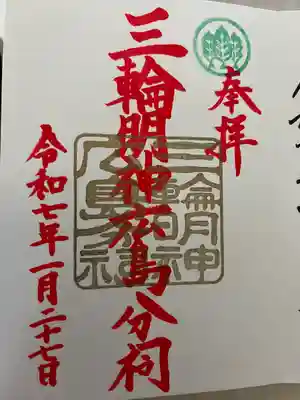 奉拝
三輪明神広島分祠
令和七年一月二十七日
三輪明神
広島分祠